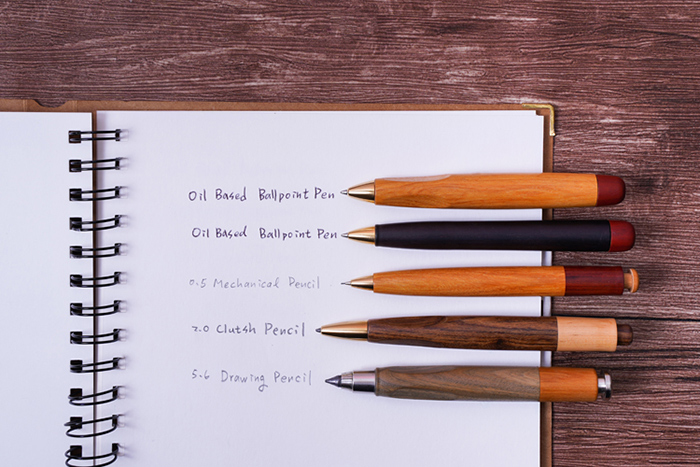 Oil Based Ballpoint Pen
Oil Based Ballpoint Pen
0.5 Mechanical Pencil
2.0 Clutsh Pencil
5.6 Drawing Pencil